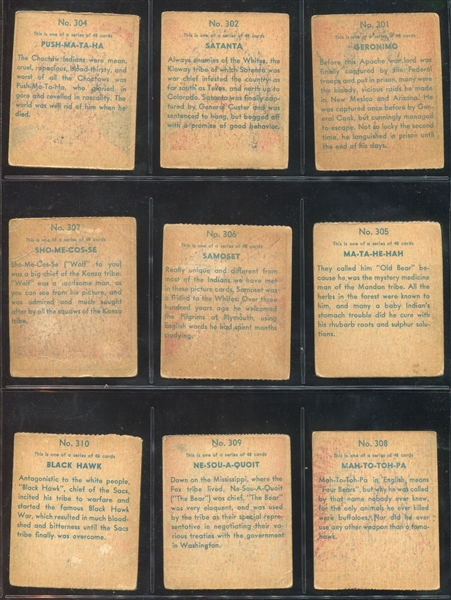 No. 304
This is one of a series of 48 cards
PUSH-MA-TA-HA
The Choctaw Indians were mean,
cruel, rapacious, blood-thirsty, and
worst of all the Choctaws was
Push-Ma-Ta-Ha, who gloried in
gore and revelled in rascality. The
world was well rid of him when he
died.
No. 302
This is one of a series of 48 cards
SATANTA
Always enemies of the Whites, the
Kiowa tribe of which Satanta was
war chief infested the country as
far south as Texas, and north up to
Colorado. Satanta was finally cap-
tured by General Custer and was
sentenced to hang, but begged off
with a promise of good behavior.
No. 301
This is one of a series of 48 cards
GERONIMO
Before this Apache war lord was
finally captured by the Federal
troops and put in prison, many were
the bloody, vicious raids he made
in New Mexico and Arizona. He
was captured once before by Gen-
eral Cook, but cunningly managed
to escape. Not so lucky the second
time, he languished in prison until
the end of his days.
No. 307
This is one of a series of 48 cards
SHO-ME-COS-SE
Sho-Me-Cos-Se ("Wolf" to you)
was a big chief of the Konza tribe.
"Wolf" was a handsome man, as
you can see from his picture, and
was admired and much sought
after by all the squaws of the Konza
tribe.
No. 306
This is one of a series of 48 cards
SAMOSET
Really unique and different from
most of the Indians we have met
in these picture cards, Samoset was
a friend to the Whites. Over three
hundred years ago he welcomed
the Pilgrims at Plymouth, using
English words he had spent months
studying.
No. 305
This is one of a series of 48 cards
MA-TA-HE-HAH
They called him "Old Bear" be-
cause he was the mystery medicine
man of the Mandan tribe. All the
herbs in the forest were known to
him, and many a baby Indian's
stomach trouble did he cure with
his rhubarb roots and sulphur solu-
tions.
No. 310
This is one of a series of 48 cards
BLACK HAWK
Antagonistic to the white people,
"Black Hawk", chief of the Sacs,
incited his tribe to warfare and
started the famous Black Hawk
War, which resulted in much blood-
shed and bitterness until the Sacs
tribe finally was overcome.
No. 309
This is one of a series of 48 cards
NE-SOU-A-QUOIT
Down on the Mississippi, where the
Fox tribe lived, Ne-Sou-A-Quoit
("The Bear") was chief. "The Bear"
was very eloquent, and was used
by the tribe as their special repre-
sentative in negotiating their va-
rious treaties with the government
in Washington.
No. 308
This is one of a series of 48 cards
MAH-TO-TOH-PA
Mah-To-Toh-Pa in English, means
"Four Bears", but why he was called
by that name nobody ever knew,
for the only animals he ever killed
were buffaloes. Nor did he ever
use any other weapon than a toma-
hawk.